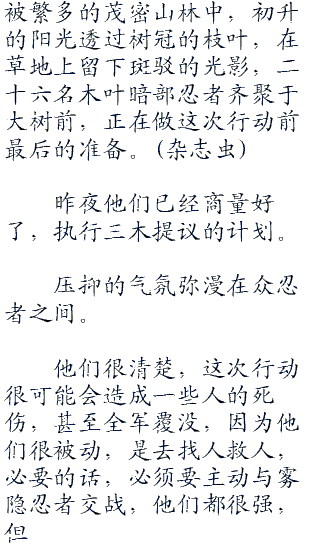 被繁多的茂密山林中，初升
的阳光透过树冠的枝叶，在
草地上留下斑驳的光影，二
十六名木叶暗部忍者齐聚于
大树前，正在做这次行动前
最后的准备。(杂志虫)
昨夜他们已经商量好
了，执行三木提议的计划。
压抑的气氛弥漫在众忍
者之间。
他们很清楚，这次行动
很可能会造成一些人的死
伤，甚至全军覆没，因为他
们很被动，是去找人救人，
必要的话，必须要主动与雾
隐忍者交战，他们都很强，
但